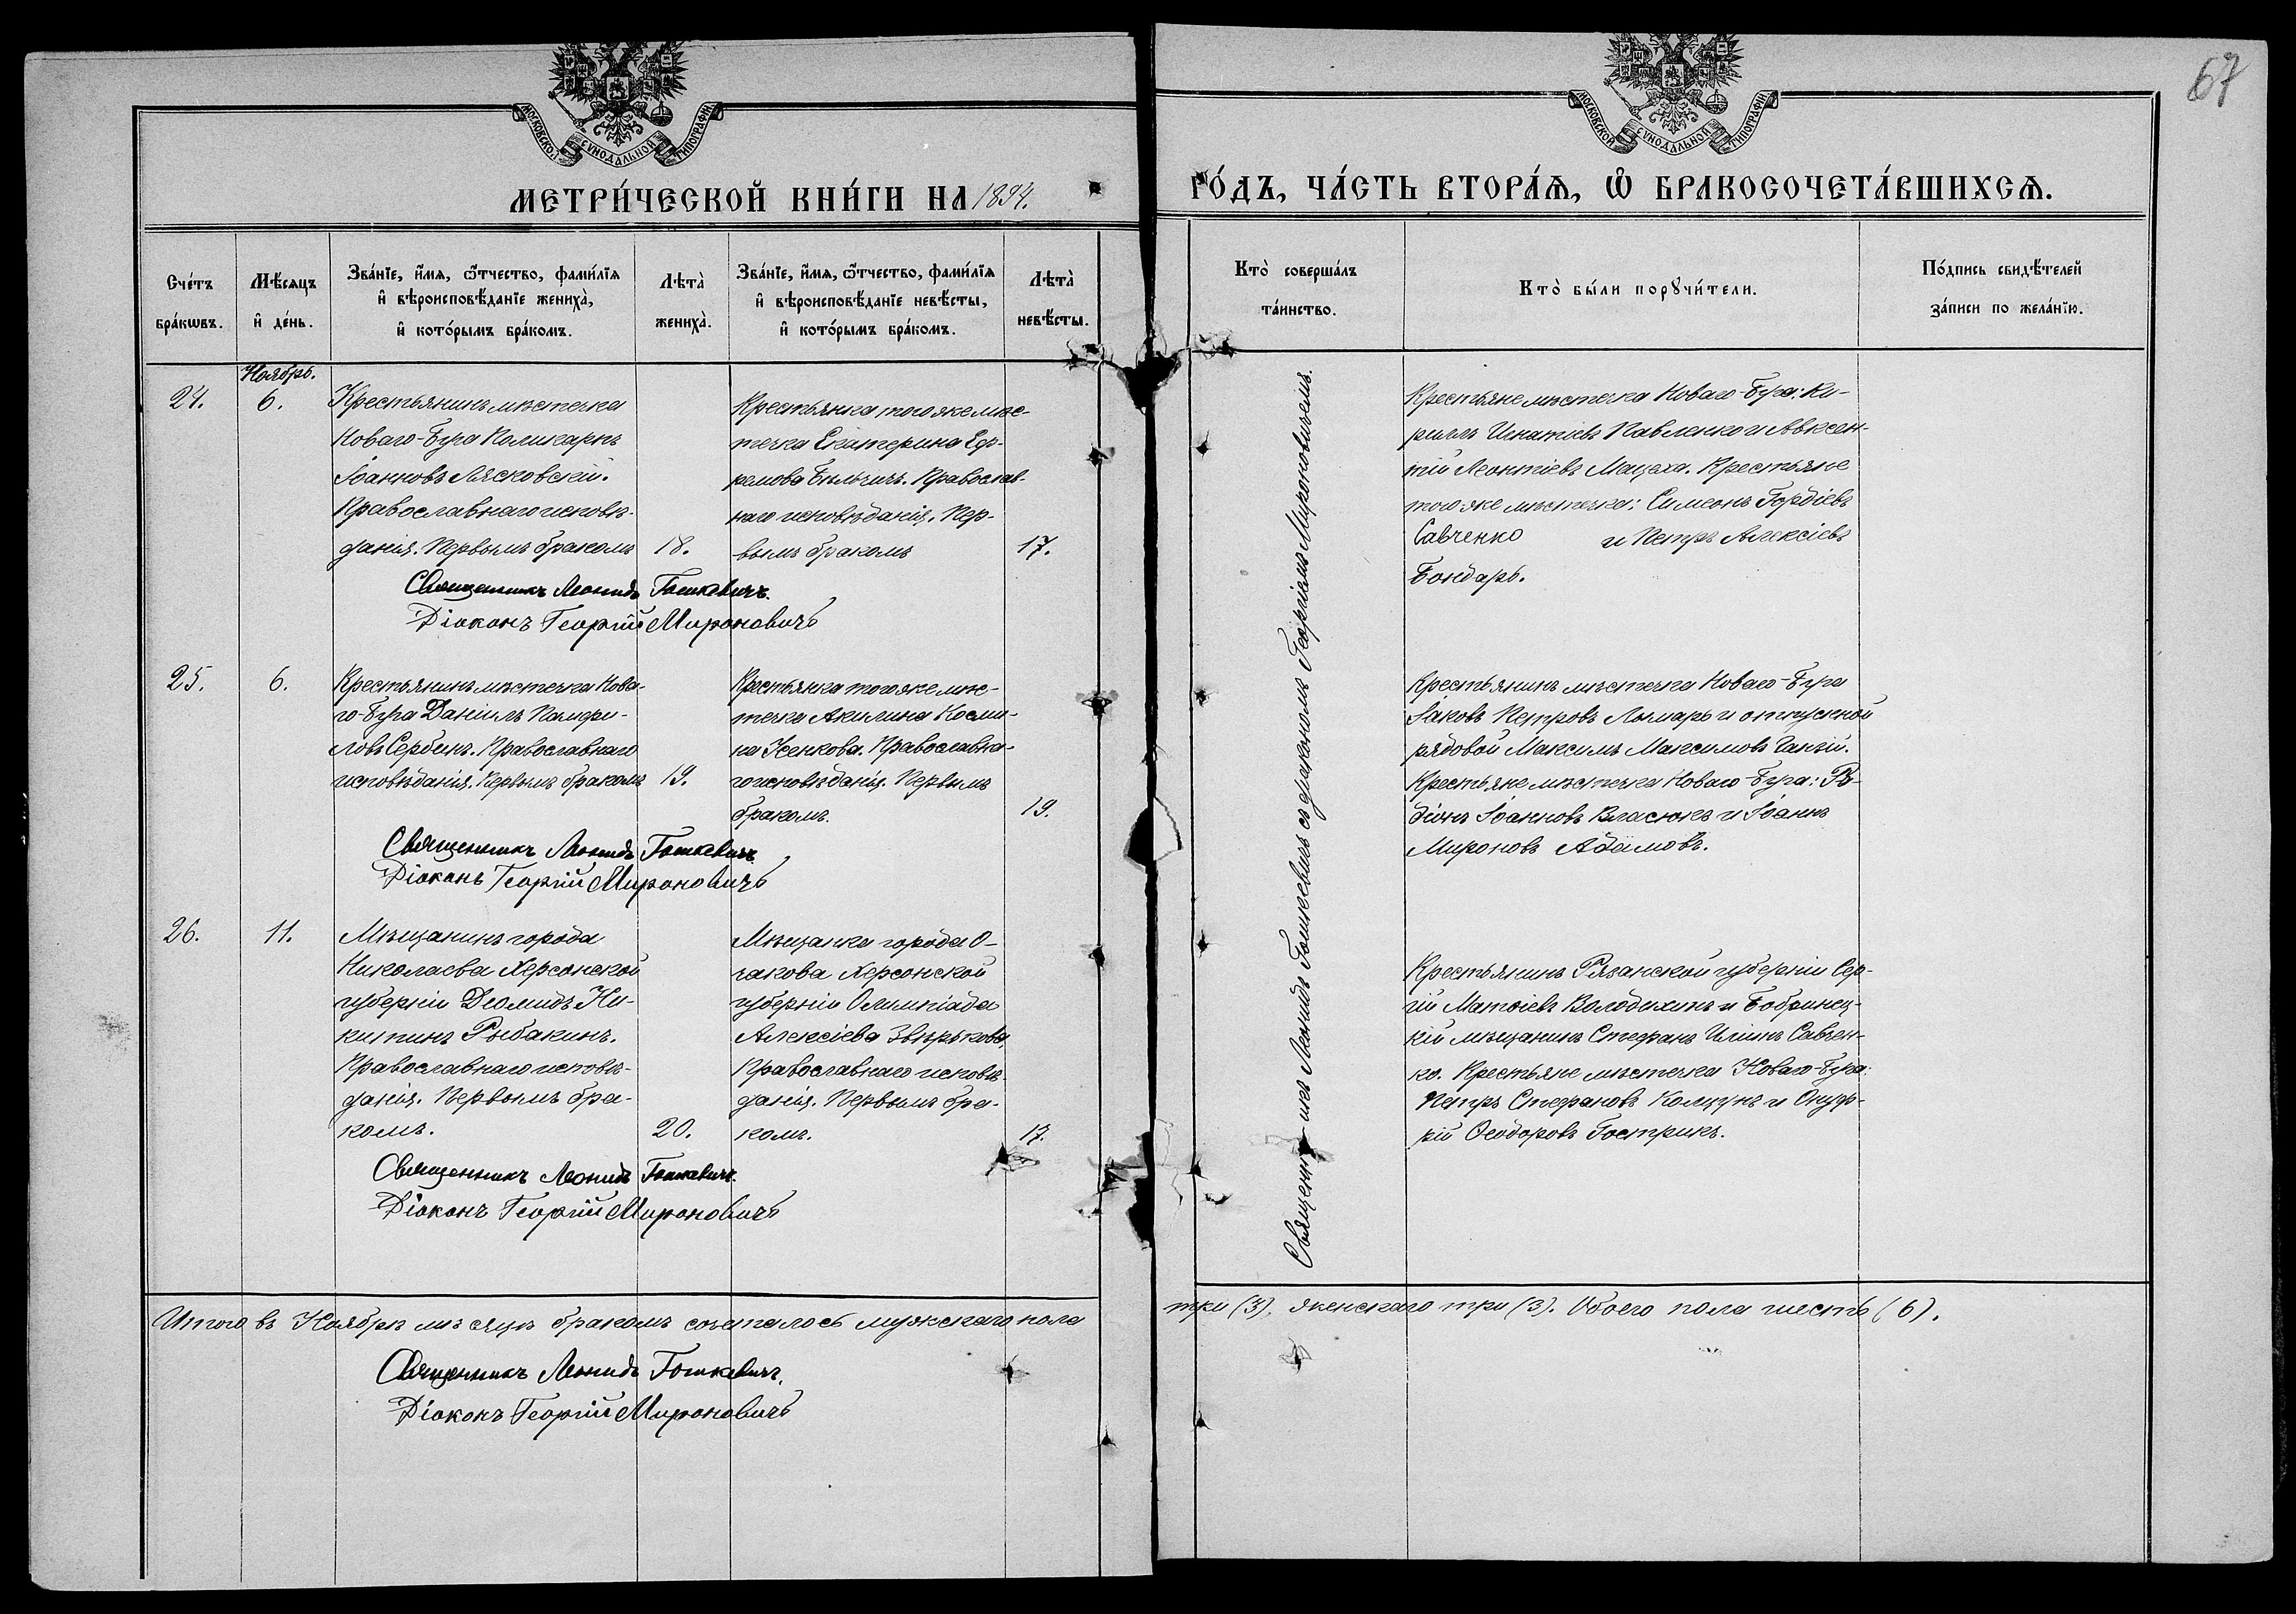 67
МОСКОВСКОЙ СѴНОДАЛЬНОЙ ТИПОГРАФІИ
МОСКОВСКОЙ СѴНОДАЛЬНОЙ ТИПОГРАФІИ
МЕТРИ́ЧЕСКОЙ КНИ́ГИ НА 1894. ГО́ДЪ, ЧА́СТЬ ВТОРА́Ѧ, Ѡ҆ БРАКОСОЧЕТА́ВШИХСѦ.
Сче́тъ
бра́кѡвъ.
Мѣ́сѧцъ
и҆ де́нь.
Зва́нїе, и҆́мѧ, ѻ҆́тчество, фами́лїѧ
и҆ вѣроисповѣ́данїе жениха̀,
и҆ кото́рымъ бра́комъ.
Лѣта̀
жениха̀.
Зва́нїе, и҆́мѧ, ѻ҆́тчество, фами́лїѧ
и҆ вѣроисповѣ́данїе невѣ́сты,
и҆ кото́рымъ бра́комъ.
Лѣта̀
невѣ́сты.
Кто̀ соверша́лъ
та́инство.
Кто̀ бы́ли порꙋчи́тели.
По́дпись свидѣ́телей
за́писи по жела́нїю.
Ноябрь.
24.
6.
Крестьянинъ мѣстечка
Новаго-Буга Поликарпъ
Іоанновъ Лясковскій.
Православнаго исповѣ-
данія. Первымъ бракомъ
18.
Крестьянка того же мѣс-
течка Екатерина Еф-
ремова Бѣльчичъ. Православ-
наго исповѣданія. Пер-
вымъ бракомъ
17.
Крестьяне мѣстечка Новаго-Буга: Ки-
риллъ Игнатіевъ Павленко и Авксен-
тій Леонтіевъ Мацеха. Крестьяне
того же мѣстечка: Симеонъ Гордіевъ
Савченко и Петръ Алексіевъ
Бондарь.
Священникъ Леонидъ Гошкевичъ.
Діаконъ Георгій Мироновичъ
25.
6.
Крестьянинъ мѣстечка Нова-
го-Буга Даніилъ Памфи-
ловъ Сербинъ. Православнаго
исповѣданія. Первымъ бракомъ
19.
Крестьянка того же мѣс-
течка Акилина Косми-
на Ненкова. Православна-
го исповѣданія. Первымъ
бракомъ.
19.
Крестьянинъ мѣстечка Новаго-Буга
Іаковъ Петровъ Лымарь и отпускной
рядовой Максимъ Максимовъ Ганжій.
Крестьяне мѣстечка Новаго-Буга: Ро-
діонъ Іоанновъ Власюкъ и Іоаннъ
Мироновъ Адамовъ.
Священникъ Леонидъ Гошкевичъ
Діаконъ Георгій Мироновичъ
26.
11.
Мѣщанинъ города
Николаева Херсонской
губерніи Діомидъ Ни-
китинъ Рыбакинъ.
Православнаго исповѣ-
данія. Первымъ бра-
комъ.
20.
Мѣщанка города О-
чакова Херсонской
губерніи Олимпіада
Алексіева Звѣрькова,
Православнаго исповѣ-
данія. Первымъ бра-
комъ.
17.
Крестьянинъ Рязанской губерніи Сер-
гій Матѳіевъ Володихинъ и Бобринец-
кій мѣщанинъ Стефанъ Иліинъ Савчен-
ко. Крестьяне мѣстечка Новаго-Буга:
Петръ Стефановъ Колцунъ и Онуф-
рій Ѳеодоровъ Гострикъ.
Священникъ Леонидъ Гошкевичъ.
Діаконъ Георгій Мироновичъ
Священникъ Леонидъ Гошкевичъ съ діакономъ Георгіемъ Мироновичемъ.
Итого въ Ноябрѣ мѣсяцѣ бракомъ сочеталось мужскаго пола три (3), женскаго три (3). Обоего пола шесть (6).
Священникъ Леонидъ Гошкевичъ.
Діаконъ Георгій Мироновичъ